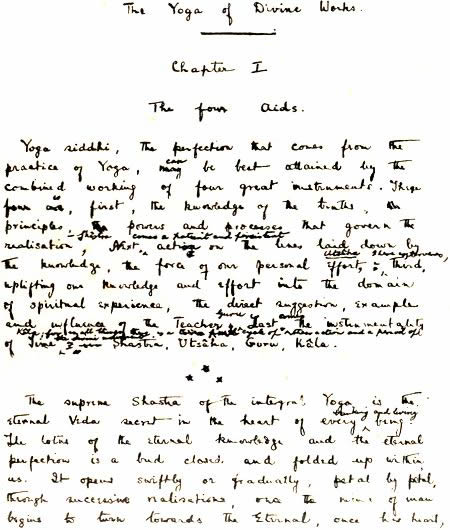 The Yoga of Divine Works.
Chapter I
The four Aids.
Yoga siddhi, the perfection that comes from the
practice of Yoga, can be best attained by the
combined working of four great instruments. There
is, first, the knowledge of the truths,
principles, powers and processes that govern the
realisation, Shastra. Next comes a patient and persistent
action on the lines laid down by
the knowledge, the force of our personal effort, Utsaha. third,
uplifting our knowledge and effort into the domain
of spiritual experience, the direct suggestion, example
and influence of the Teacher, Guru. Last the instrumentality
of Time
Shastra, Utsâha, Guru, Kâla.
The supreme Shastra of the integral Yoga is the
eternal Veda secret in the heart of every thinking and living being.
The lotus of the eternal knowledge and the eternal
perfection is a bud closed and folded up within
us. It opens swiftly or gradually, petal by petal,
through successive realisations, once the mind of man
begins to turn towards the Eternal, once his heart,